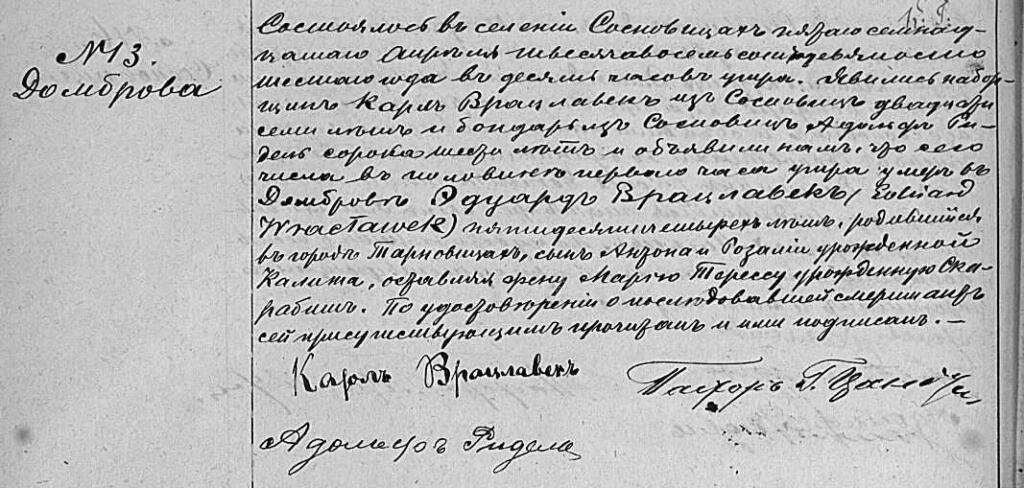 № 13.
Домброва
Состоялось въ селеніи Сосновицахъ пятаго семнад-
цатаго Апрѣля тысяча восемьсотъ девяносто
шестаго года въ десять часовъ утра. Явились набор-
щикъ Карлъ Врацлавекъ изъ Сосновицъ двадцати
семи лѣтъ и бондарь изъ Сосновицъ Адольфъ Ри-
дель сорока шести лѣтъ и объявили намъ, что сего
числа въ половинѣ перваго часа утра умеръ въ
Домбровѣ Эдуардъ Врацлавекъ (Eduard
Wracławek) пятидесяти четырехъ лѣтъ, родившійся
въ городѣ Тарновицахъ, сынъ Антона и Розаліи урожденной
Калита, оставляя жену Марію Терессу урожденную Ска-
рабишъ. По удостовѣреніи о послѣдовавшей смерти актъ
сей присутствующимъ прочитанъ и ими подписанъ. —
Карлъ Врацлавекъ
Пасторъ Г.
Адольфъ Ридель